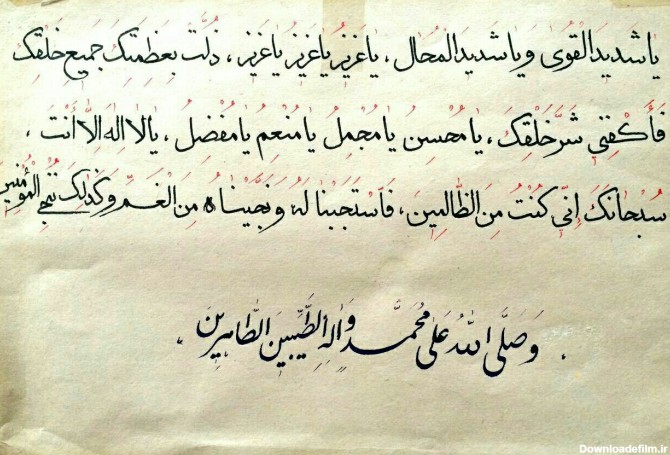 یا شَدیدَ القُویٰ وَ یا شَدیدَ المُحال ، یا عَزیزُ یا عَزیزُ یا عَزیز ، ذَلَّت بِعَظَمَتِکَ جَمیعِ خَلقِکَ
فَأَکْفِنی شَرَّ خَلْقِکَ ، یا مُحْسِنُ یا مُجْمِلُ یا مُنْعِمُ یا مُفْضِلُ ، یا لا اِلهَ اِلّا اَنْتَ ،
سُبْحانَکَ اِنّی کُنْتُ مِنَ الظّالِمینَ ، فَاَسْتَجَبْنا لَهُ وَ نَجَّیْناهُ مِنَ الْغَمِّ وَ کَذٰلِکَ نُنْجِی الْمُؤْمِنینَ
وَ صَلَّی اللّٰهُ عَلیٰ مُحَمَّدٍ وَ الِهِ الطَّیِّبینَ الطّاهِرینَ .
Downloadefilm.ir